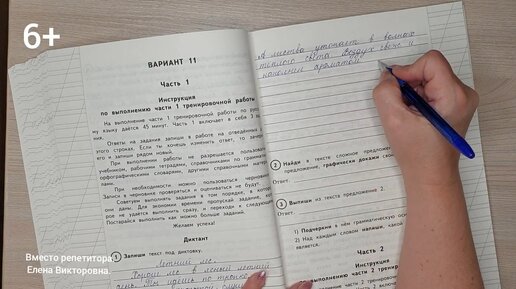 6+
ВАРИАНТ 11
Часть 1
Инструкция
по выполнению части 1 тренировочной работы
На выполнение части 1 тренировочной работы по рус-
му языку даётся 45 минут. Часть 1 включает в себя 3 за-
Ответы на задания запиши в работе на отведённых
этого строках. Если ты хочешь изменить ответ, то зачеркни
его и запиши рядом новый.
При выполнении работы не разрешается пользоваться
учебником, рабочими тетрадями, справочниками по грамматике,
орфографическими словарями, другими справочными матери-
При необходимости можно пользоваться черновиком.
Записи в черновике проверяться и оцениваться не будут.
Советуем выполнять задания в том порядке, в котором
они даны. Для экономии времени пропускай задание, которое
не удаётся выполнить сразу, и переходи к следующему.
Постарайся выполнить как можно больше заданий.
Желаем успеха!
Диктант
1 Запиши текст под диктовку.
Летний лес.
Хорош лес в летний
день.
А листва утопает в волнах
тёплого света. Воздух свеж и
наполнен ароматом
2 Найди в тексте сложное предложение
предложение, графически докажи свой
Ответ.
3 Выпиши из текста предложение 2.
Ответ.
1) Подчеркни в нём грамматическую основу
2) Над каждым словом напиши, какой
является.
Часть 2
Инструкция
по выполнению части 2 тренировочной
На выполнение части 2 тренировочной
Вместо репетитора
Елена Викторовна.